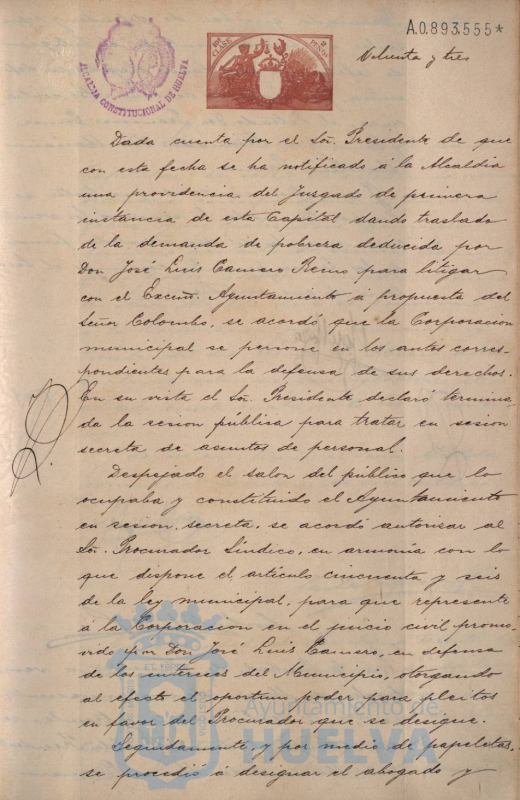 A.0.893.555*
ALCALDIA CONSTITUCIONAL DE HUELVA
10ª CLASE 2 PESETAS
Ochenta y tres
Dada cuenta por el Sor. Presidente de que
con esta fecha se ha notificado á la Alcaldia
una providencia del Juzgado de primera
instancia de esta Capital dando traslado
de la demanda de pobreza deducida por
Don José Luis Camero Reino para litigar
con el Excmo. Ayuntamiento á propuesta del
Señor Colombo, se acordó que la Corporacion
municipal se persone en los autos corres-
pondientes para la defensa de sus derechos.
En su vista el Sor. Presidente declaró termina-
da la sesion pública para tratar en sesion
secreta de asuntos de personal.
Despejado el salon del público que lo
ocupaba y constituido el Ayuntamiento
en sesion secreta, se acordó autorisar al
Sor. Procurador Síndico, en armonía con lo
que dispone el artículo cincuenta y seis
de la ley municipal, para que represente
á la Corporacion en el juicio civil promo-
vido por Don José Luis Camero, en defensa
de los intereses del Municipio, otorgando
al efecto el oportuno poder para pleitos
en favor del Procurador que se designe.
Seguidamente, y por medio de papeletas,
se procedió á designar el abogado y
Ayuntamiento de
HUELVA